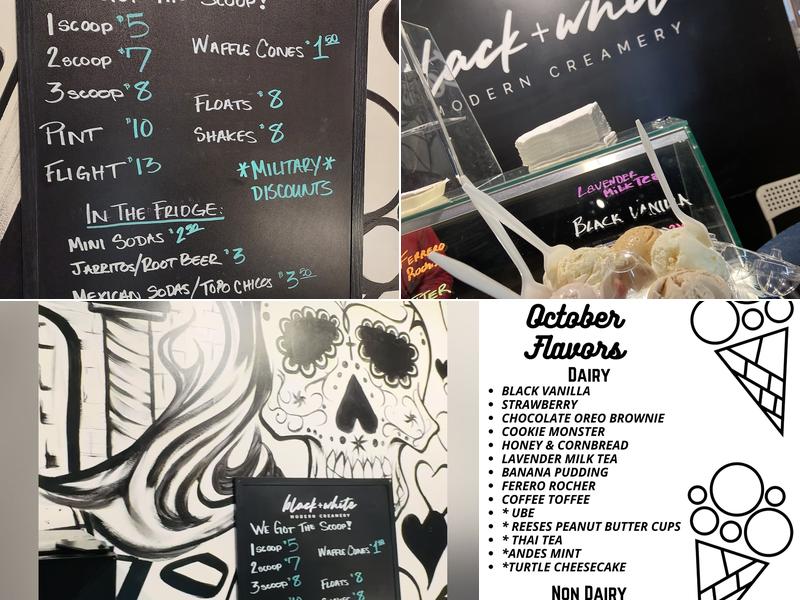 GOT THE SCOOP!
1 SCOOP $5
2 SCOOP $7
3 SCOOP $8
PINT $10
FLIGHT $13
WAFFLE CONES $1.50
FLOATS $8
SHAKES $8
*MILITARY*
DISCOUNTS
IN THE FRIDGE:
MINI SODAS $2.50
JARRITOS/ROOT BEER $3
MEXICAN SODAS/TOPO CHICOS $3.50
black+white
MODERN CREAMERY
LAVENDER
MILK TEA
BLACK VANILLA
FERRERO
black+white
MODERN CREAMERY
WE GOT THE SCOOP!
1 SCOOP $5
2 SCOOP $7
3 SCOOP $8
WAFFLE CONES $1.50
FLOATS $8
October
Flavors
DAIRY
• BLACK VANILLA
• STRAWBERRY
• CHOCOLATE OREO BROWNIE
• COOKIE MONSTER
• HONEY & CORNBREAD
• LAVENDER MILK TEA
• BANANA PUDDING
• FERERO ROCHER
• COFFEE TOFFEE
• * UBE
• * REESES PEANUT BUTTER CUPS
• * THAI TEA
• *ANDES MINT
• *TURTLE CHEESECAKE
NON DAIRY